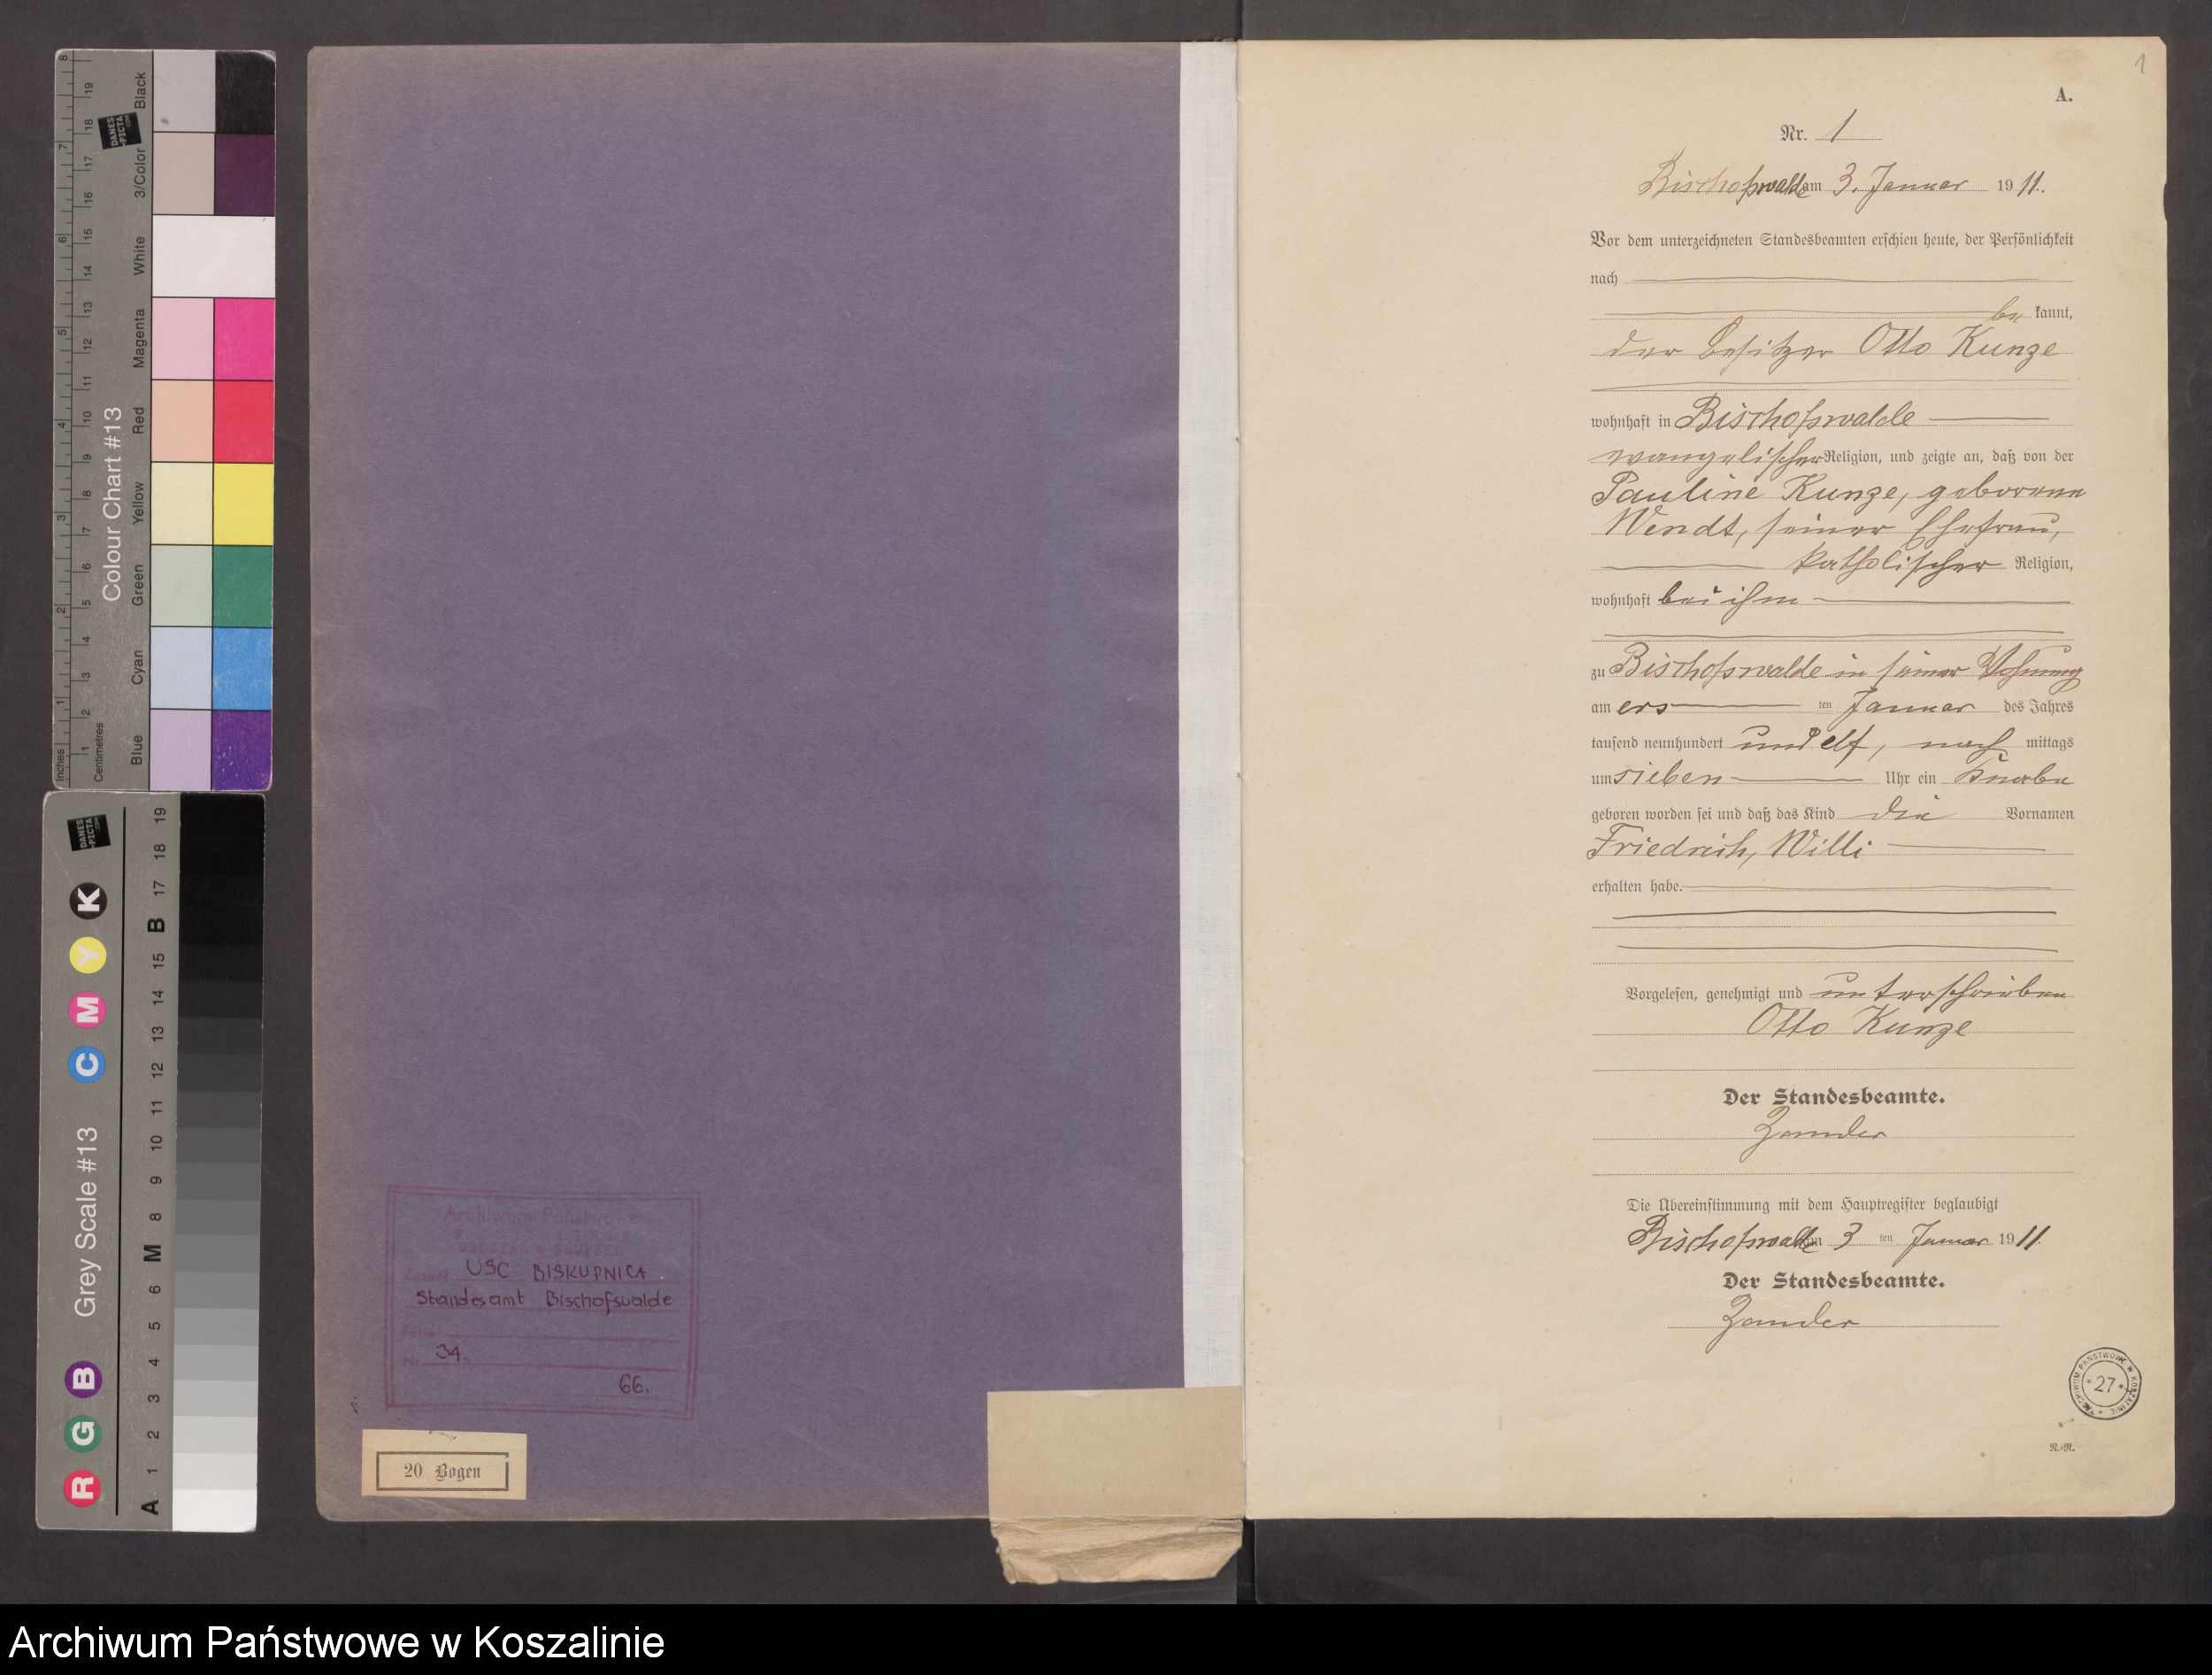 Inches 1 2 3 4 5 6 7 8
Centimetres 1 2 3 4 5 6 7 8 9 10 11 12 13 14 15 16 17 18 19
DANES-PICTA.COM
Colour Chart #13
Blue Cyan Green Yellow Red Magenta White 3/Color Black
R G B
Grey Scale #13
C M Y K
A 1 2 3 4 5 6 M 8 9 10 11 12 13 14 15 B 17 18 19
DANES-PICTA.COM
Archiwum Państwowe
Zespół USC BISKUPNICA
Standesamt Bischofswalde
34.
66.
20 Bogen
1
A.
Nr. 1
Bischofswalde am 3. Januar 1911.
Vor dem unterzeichneten Standesbeamten erschien heute, der Persönlichkeit
nach
be kannt,
der Besitzer Otto Kunze
wohnhaft in Bischofswalde
evangelischer Religion, und zeigte an, daß von der
Pauline Kunze, geborene
Wendt, seiner Ehefrau,
katholischer Religion,
wohnhaft bei ihm
zu Bischofswalde in seiner Wohnung
am ers ten Januar des Jahres
tausend neunhundert und elf, nach mittags
um sieben Uhr ein Knabe
geboren worden sei und daß das Kind die Vornamen
Friedrich, Willi
erhalten habe.
Vorgelesen, genehmigt und unterschrieben
Otto Kunze
Der Standesbeamte.
Zander
Die Übereinstimmung mit dem Hauptregister beglaubigt
Bischofswalde am 3 ten Januar 1911.
Der Standesbeamte.
Zander
ARCHIWUM PAŃSTWOWE W KOSZALINIE
* 27 *
N.-R.
Archiwum Państwowe w Koszalinie